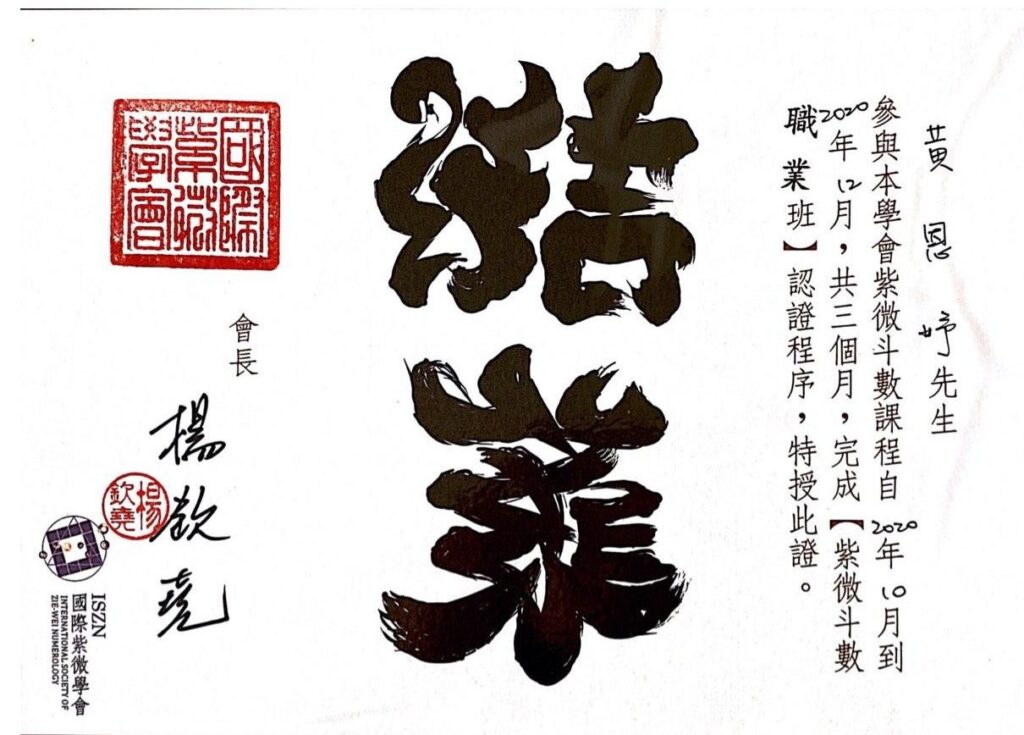 黄恩妤先生
參與本學會紫微斗數課程自2020年10月到
2020年12月，共三個月，完成【紫微斗數
職業班】認證程序，特授此證。
結業
國際紫微學會
會長
楊欽堯
楊欽堯
ISZN
國際紫微學會
INTERNATIONAL SOCIETY OF
ZIE-WEI NUMEROLOGY